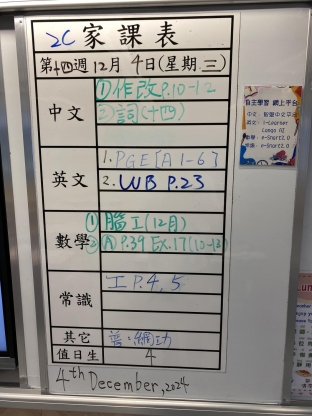 2C 家課表
第十四週12月4日(星期.三)
中文
① 作改P.10-12
② 詞(十四)
英文
1. PGE[A1-6]
2. WB P.23
數學
① 腦工(12月)
② Ⓐ P.39 Ex.17(10-13)
常識
工P.4,5
其它
普:網功
值日生
4
4th December, 2024
自主學習 網上平台
i-Learner
e-Smart2.0
e-Smart2.0